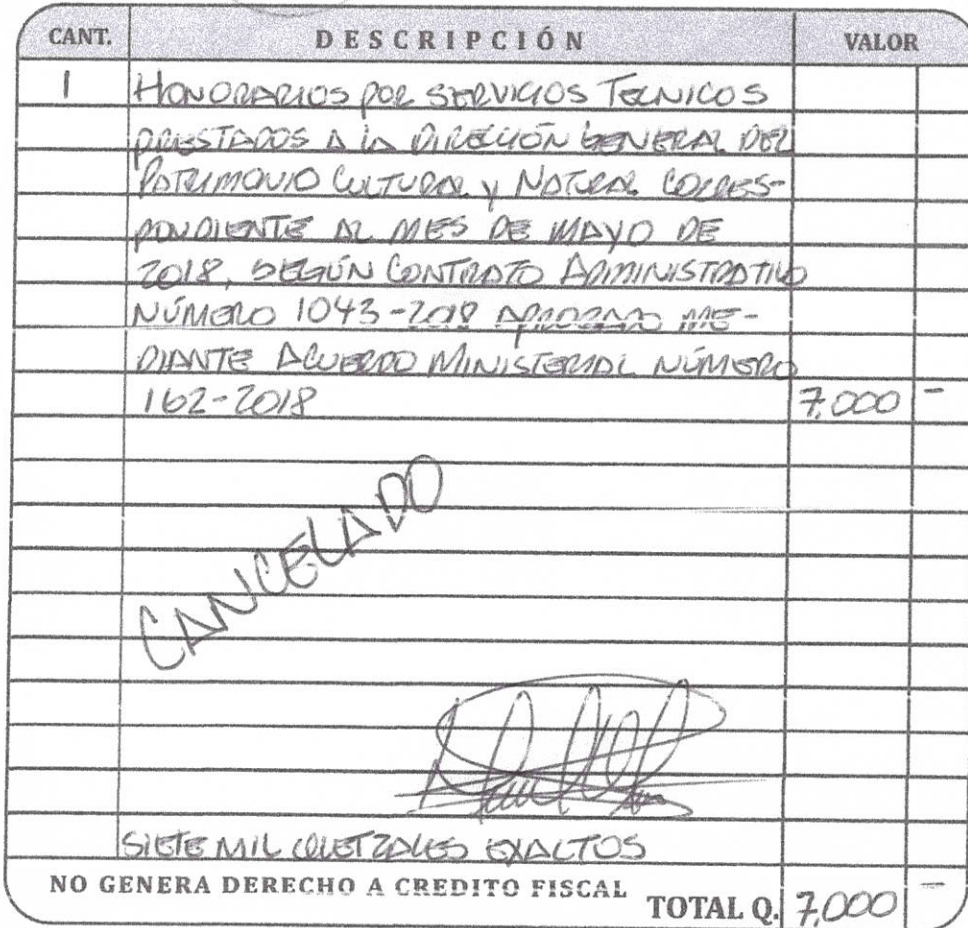 CANT. DESCRIPCIÓN VALOR
1 HONORARIOS POR SERVICIOS TECNICOS
PRESTADOS A LA DIRECCIÓN GENERAL DEL
PATRIMONIO CULTURAL Y NATURAL CORRES-
PONDIENTE AL MES DE MAYO DE
2018, SEGÚN CONTRATO ADMINISTRATIVO
NÚMERO 1043-2018 APROBADO ME-
DIANTE ACUERDO MINISTERIAL NÚMERO
162-2018 7,000 -
CANCELADO
SIETE MIL QUETZALES EXACTOS
NO GENERA DERECHO A CREDITO FISCAL
TOTAL Q. 7,000 -